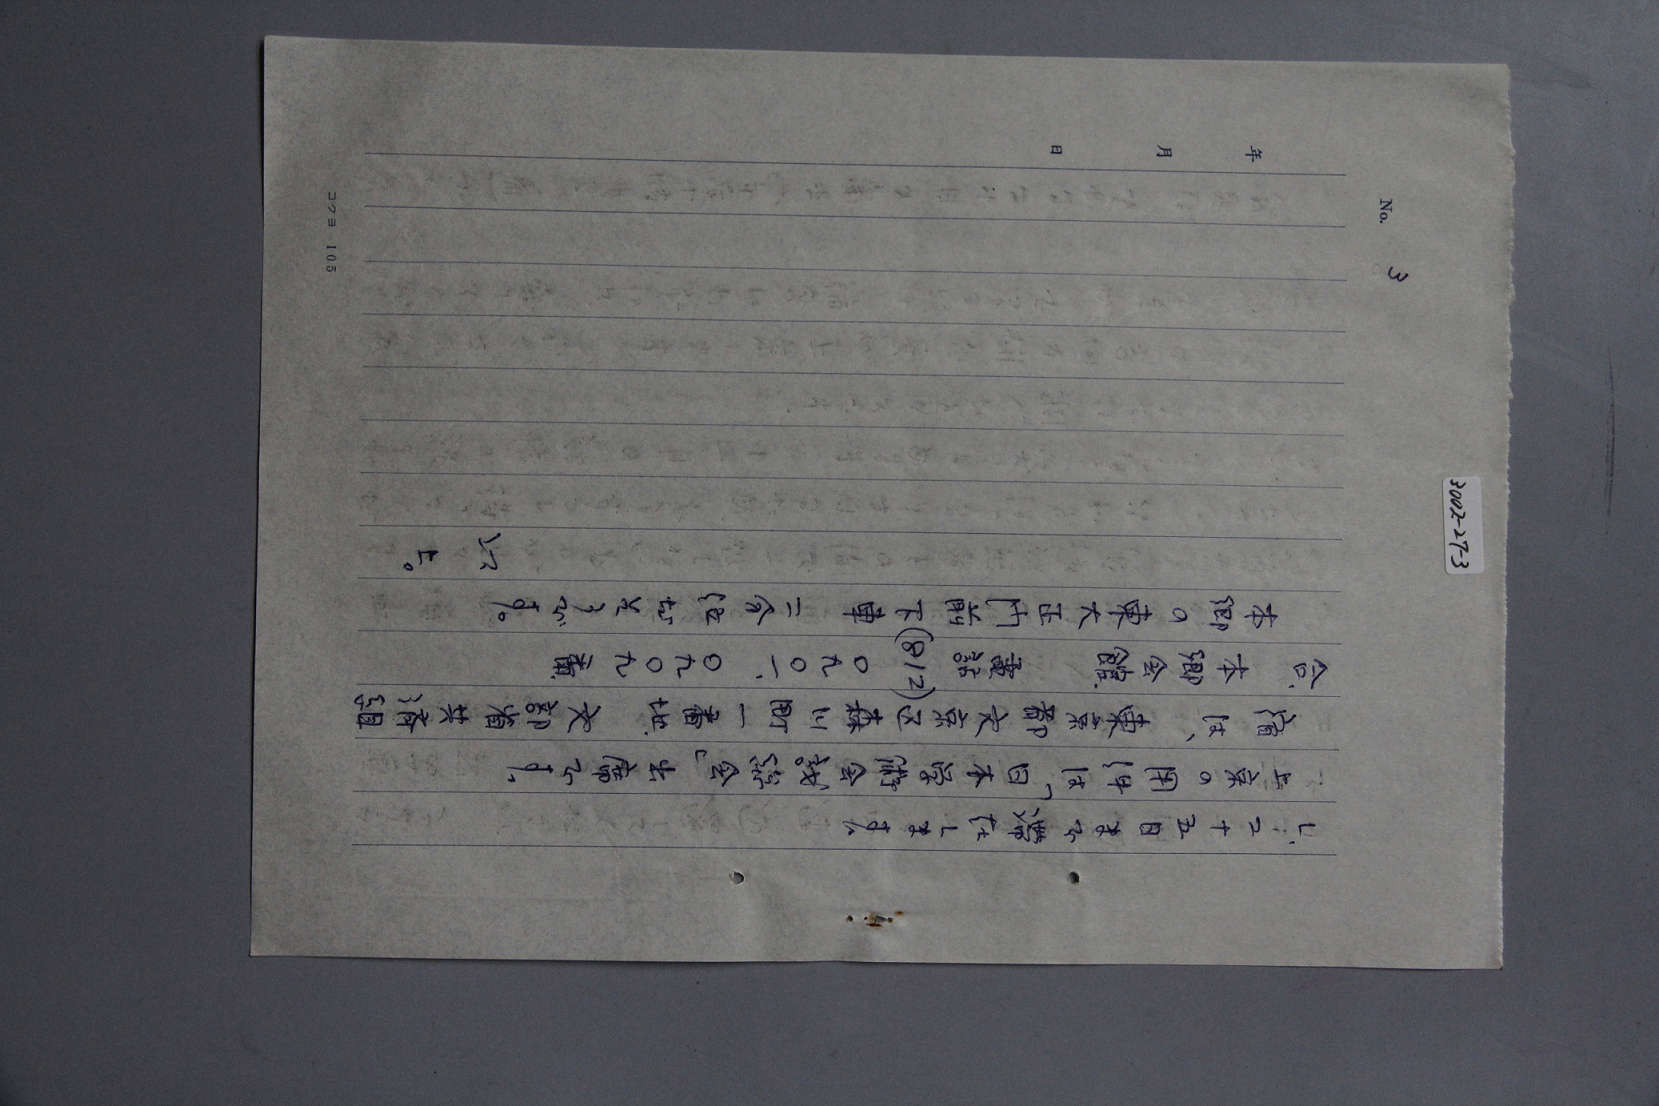 No. 3
年 月 日
し、二十五日まで滞在します。
上京の用件は、「日本学術会議総会」出席です。
宿は、東京都文京区森川町一番地 文部省共済組
合、本郷会館、電話(812)〇九〇一、〇九〇九番
本郷の東大正門前下車 二分位 です。
以上。
コクヨ 105
3002-27-3